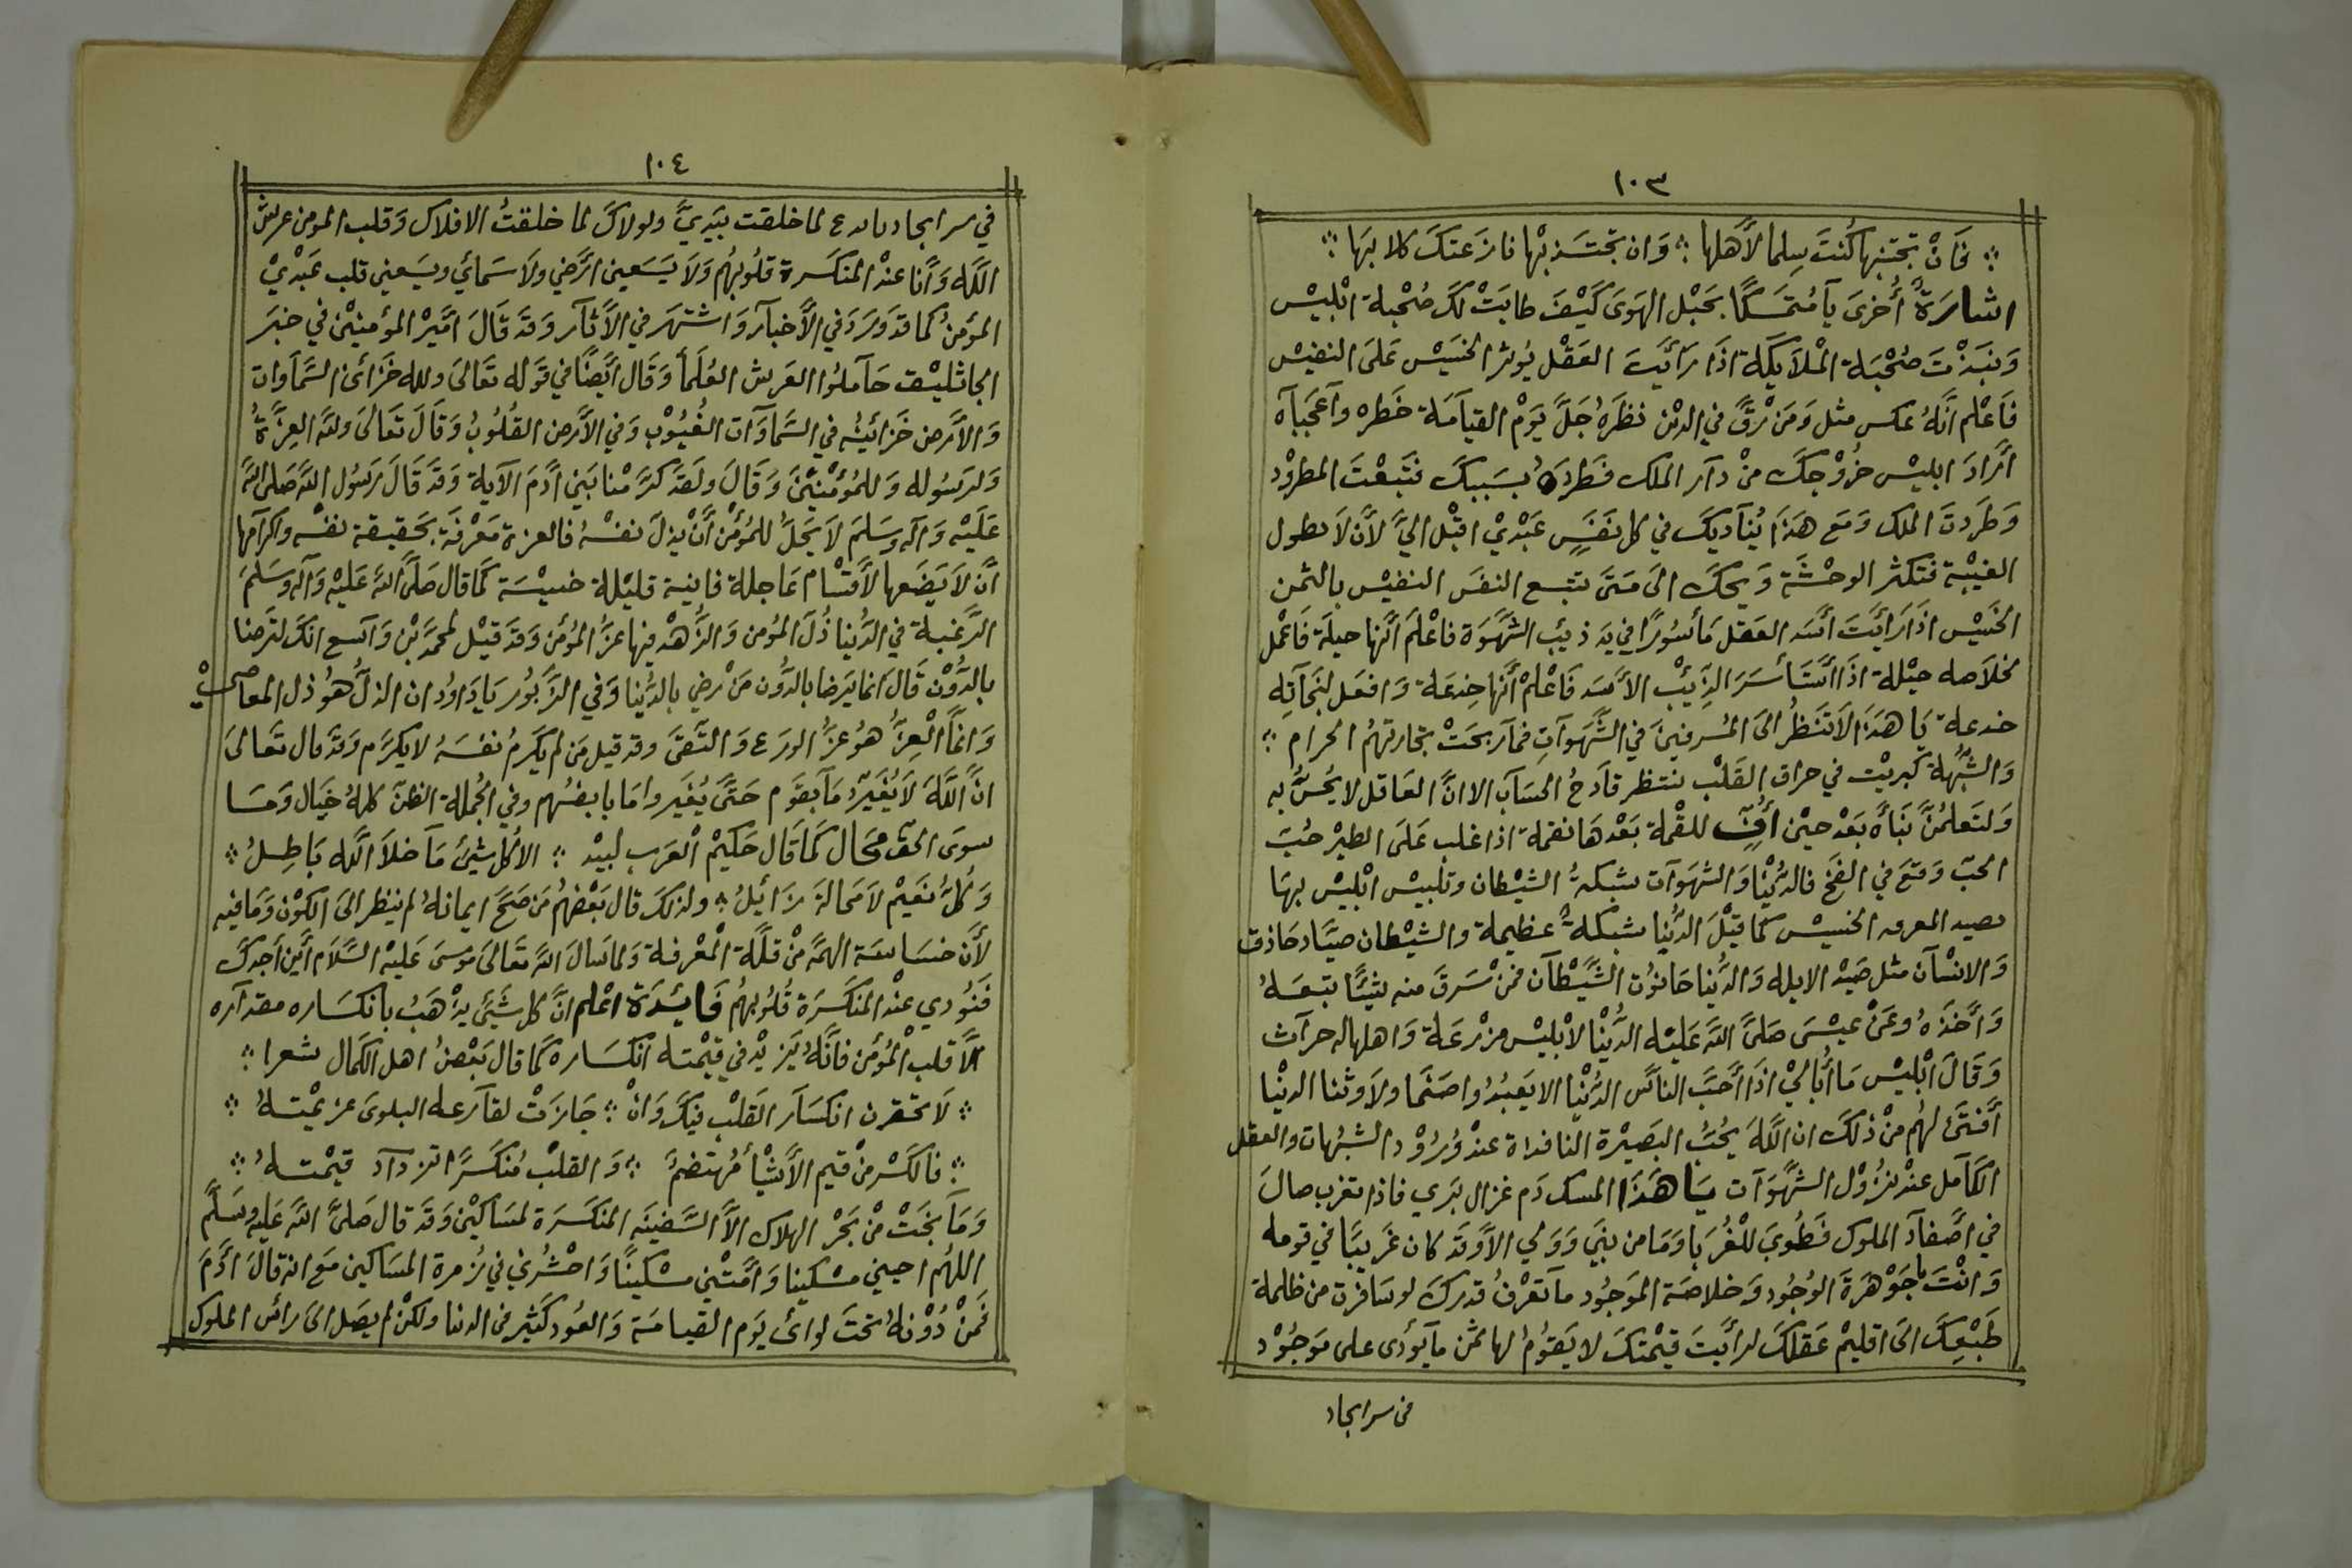 ١٠٣
؞ فَانْ تجتنبها كُنتَ سِلما لأهلها ؞ وَان تجتَذبْها نازعتكَ كلابهَا ؞
اشارَةٌ أُخرىَ يَآ مُتمَسكًا بحَبْل الهَوىَ كَيْفَ طابَتْ لكَ صُحْبة ابْليْس
وَنبَذْتَ صُحْبَة المْلآيكة اذَا رَأيَت العَقْل يُوثر الخسَيْس عَلىَ النفيْس
فاَعْلم انَّهُ عكس مثل وَمَن رَقَّ في الدين نظرَهُ جَلَّ يَوْم القيآمَة خَطره وآعجَبآه
ارَادَ ابليْس خرُوْجكَ منْ دآر الملك فَطردَهُ بسَببكَ فتَبعْتَ المطرُوْد
وَطرَدتَ الملك وَمَع هَذَا يُنآديكَ في كل نَفَسٍ عَبْديْ اقبْل اليَّ لأنْ لاَ تطول
الغيْبة فتكثر الوحْشَة وَيحكَ الىَ مَتىَ تتبع النفسَ النفيْس بالثمن
الخَسيْس اذَا رَأيْتَ أسَد العَقل مَأسُورًا في يَد ذيب الشهْوَة فاعْلمَ أنَّها حيلَة فَاعْمل
لخلاَصه حيْلة اذَا اسَتَأسَرَ الذِئيْب الأسَد فَاعْلمْ أنَّها خِدعَة وَافعَل لنجَاته
خدعة يَا هَذَا لاَتَنَظُر الىَ المُسرفينَ في الشهَوآتِ فمآربحَتْ تجارتهُم الحرام ؞
وَالشبُهة كبريْت في حراق القَلب ينتظر قادحُ الحسَآب الا انَّ العَاقل لا يحُسُّ به
وَلتَعلمُنَّ نَبَأه بَعْد حيْن أفٍّ للقمْة بَعْدهَا نقمة اذا غلب عَلىَ الطيْر حُبّ
الحبّ وَقعَ في الفخ فالدُنيْا وَالشهَوآت شبكةُ الشيْطان وتلبيْس ابْليْس بهَا
يصيد المعرفه الخسيْس كمَا قيْلَ الدُنيا شبكةٌ عظيمة والشيْطان صيَّاد حَاذق
وَالانسْآن مثل صَيْد الابله وَالدُنيا حَانوُت الشَيْطآن فمنْ سَرقَ منه شَيئًا تبعَهُ
وَأخَذهُ وعَنْ عيْسىَ صَلىَّ اللهَ عَليْه الدُّنيْا لابْليْس مزْرعَة وَاهلها له حرآث
وَقَالَ ابْليْس مَا أُبَاليْ اذَا أحَبَّ الناسَ الدُنيْا الا يَعبدُوا صَنَما ولاَ وثنا الدنيْا
أفتىَ لهُم منْ ذلكَ ان اللهَ يحُبُّ البَصيْرَة النافذاة عندْ وُرُوْد الشبُهات والعقل
الكآمل عنْد نزُوْل الشهَوَآت يَا هَذَا المسك دَم غزال بَري فاذا تغرب صالَ
في اصفآد الملوك فَطوُبىَ للْغُرَبا وَمَا من نبيَ وَوَلي الا وَقَد كان غَريبًا في قومه
وَانْتَ يا جَوْهَرَةَ الوُجوُد وَخلاصَة الموَجُود مآ تعْرفُ قدركَ لو سَافرْت من ظلمة
طَبْعِكَ الىَ اقليْم عَقلكَ لرأيْتَ قيْمتكَ لا يَقوُمُ لها ثمن مآ يؤدى على مَوجُوْد
فى سر ايجاد
١٠٤
في سر ايجاد لما خلقت بيَديَّ ولولاكَ لما خلقتُ الافلاك وَقلب المومن عرش
الله وَأنا عندْ المنكسَرة قلُوبهُم وَلاَ يَسَعني ارَضي ولاَ سَمائي ويسَعني قلب عَبْديْ
المؤمنُ كما قدَ وَرَدَ في الأَخبآر وَاشتهَر في الأثآر وَقدَ قَالَ امَيْر المؤمنيْن في خبَر
الجاثليْق حَآملوُا العَرش العُلَمأ وَقَال ايَضًا في قوَله تَعَالىَ ولله خَزائن السَّمآوات
وَالأرض خَزائنُه في السَّماوآت الغُيُوْب وَفي الأرض القُلُوبُ وَقَالَ تَعَالىَ وللهَ العِزَّةُ
وَلرَسُوله وَللمُؤمْنِيْنَ وَقَالَ ولَقدَ كرَّمْنا بَني ادَمَ الآية وَقَد قَالَ رَسُول اللهَ صَلى اللهَ
عَلَيْه وَآله وَسَلمَ لاَ يَحَلُّ للمُؤمْن أنْ يَذل نفسْهُ فالعزة مَعْرفَة بحَقيقة نفسْه واكرامها
أنَ لاَ يَضَعها لأَقسْام عَاجلة فانية قليْلة خسيْسَة كمَا قال صَلىَّ اللهَ عَليْه وَآله وَسَلمَ
الرَّغبة في الدُّنيا ذُلَ المُومن وَالزُّهدْ فيها عزُّ المُؤمن وَقدَ قيْل لمحمَّد بْن وَآسع انكَ لتَرضا
بالدُّوْن قَالَ انما يَرضا بالدُّون مَن رْضي بالدُّنيا وَفي الزَّبوُر يَا دَاوُد ان الذلُّ هُو ذل المعاصيْ
وَانمَّا الْعِزُّ هُو عزُّ الورَع وَالتَّقىَ وقد قيل مَن لم يكَرمُ نفسَهُ لا يكرَّم وَقدَ قال تَعَالىَ
انَّ اللَّهَ لاَ يُغَيّرُ مَآ بقَوَم حَتىَّ يُغَيروا مَا بانفسُهم وفي الجُملة الظنّ كلهُ خَيَال وَمَا
سوىَ الحَق محَال كَما قَال حَكيْم العَرب لَبيْد ؞ الا كُل شيَئ مَا خلاَ اللَّه بَاطِلُ ؞
وَكُلَّ نعَيْم لاَ محَالةَ زَائلُ ؞ ولذلكَ قال بَعْضهُم مَن صَحَّ ايمانهُ لم ينظر الىَ الكوْن وَمَا فيه
لأَنَ خسَاسَة الهمَّه منْ قلَّة المَعْرفة وَلما سَالَ اللهَ تعَالىَ مُوسىَ عَليْه السَّلاَم أينَ أجدكَ
فنَوُدي عنْد المنكَسَرَة قُلُوبهُم فَايئدَة اعْلم انَّ كل شَيئَ يذْهَبُ بانكسَاره مقدآره
الاَّ قلب المُؤمن فانَّهُ يَزيْد في قيْمته انكسَاره كمَا قال بَعْضُ اهل الكمال شعرا ؞
؞ لاَ تحَقرن انكسَآر القَلْب فيكَ وَانْ ؞ جَازَتْ لقآرعه البلوىَ عزيمْتهُ ؞
؞ فالكَسْر منْ قيم الأَشْيْأ مُهتضمٌ ؞ وَالقلبْ مُنكَسرًا تزدآد قيْمتهُ ؞
وَمَآ نجَتْ منْ بَحْر الهلاك الاَّ السَّفينَه المنكسَرَة لمسَاكيْن وَقدَ قال صَلىَّ اللهَ عَليْه وَسَلمَّ
اللهُم احيني مسْكينا وَأمَتْني مسْكينًا وَاحْشُرني في زُمرة المسَاكين مَع انه قالَ ادَمَ
فَمنْ دُوْنهُ تحَتَ لوائى يَوم القيامَة وَالعُود كَثيْر في الدنيا ولكنْ لم يصَل الىَ رائس الملوك